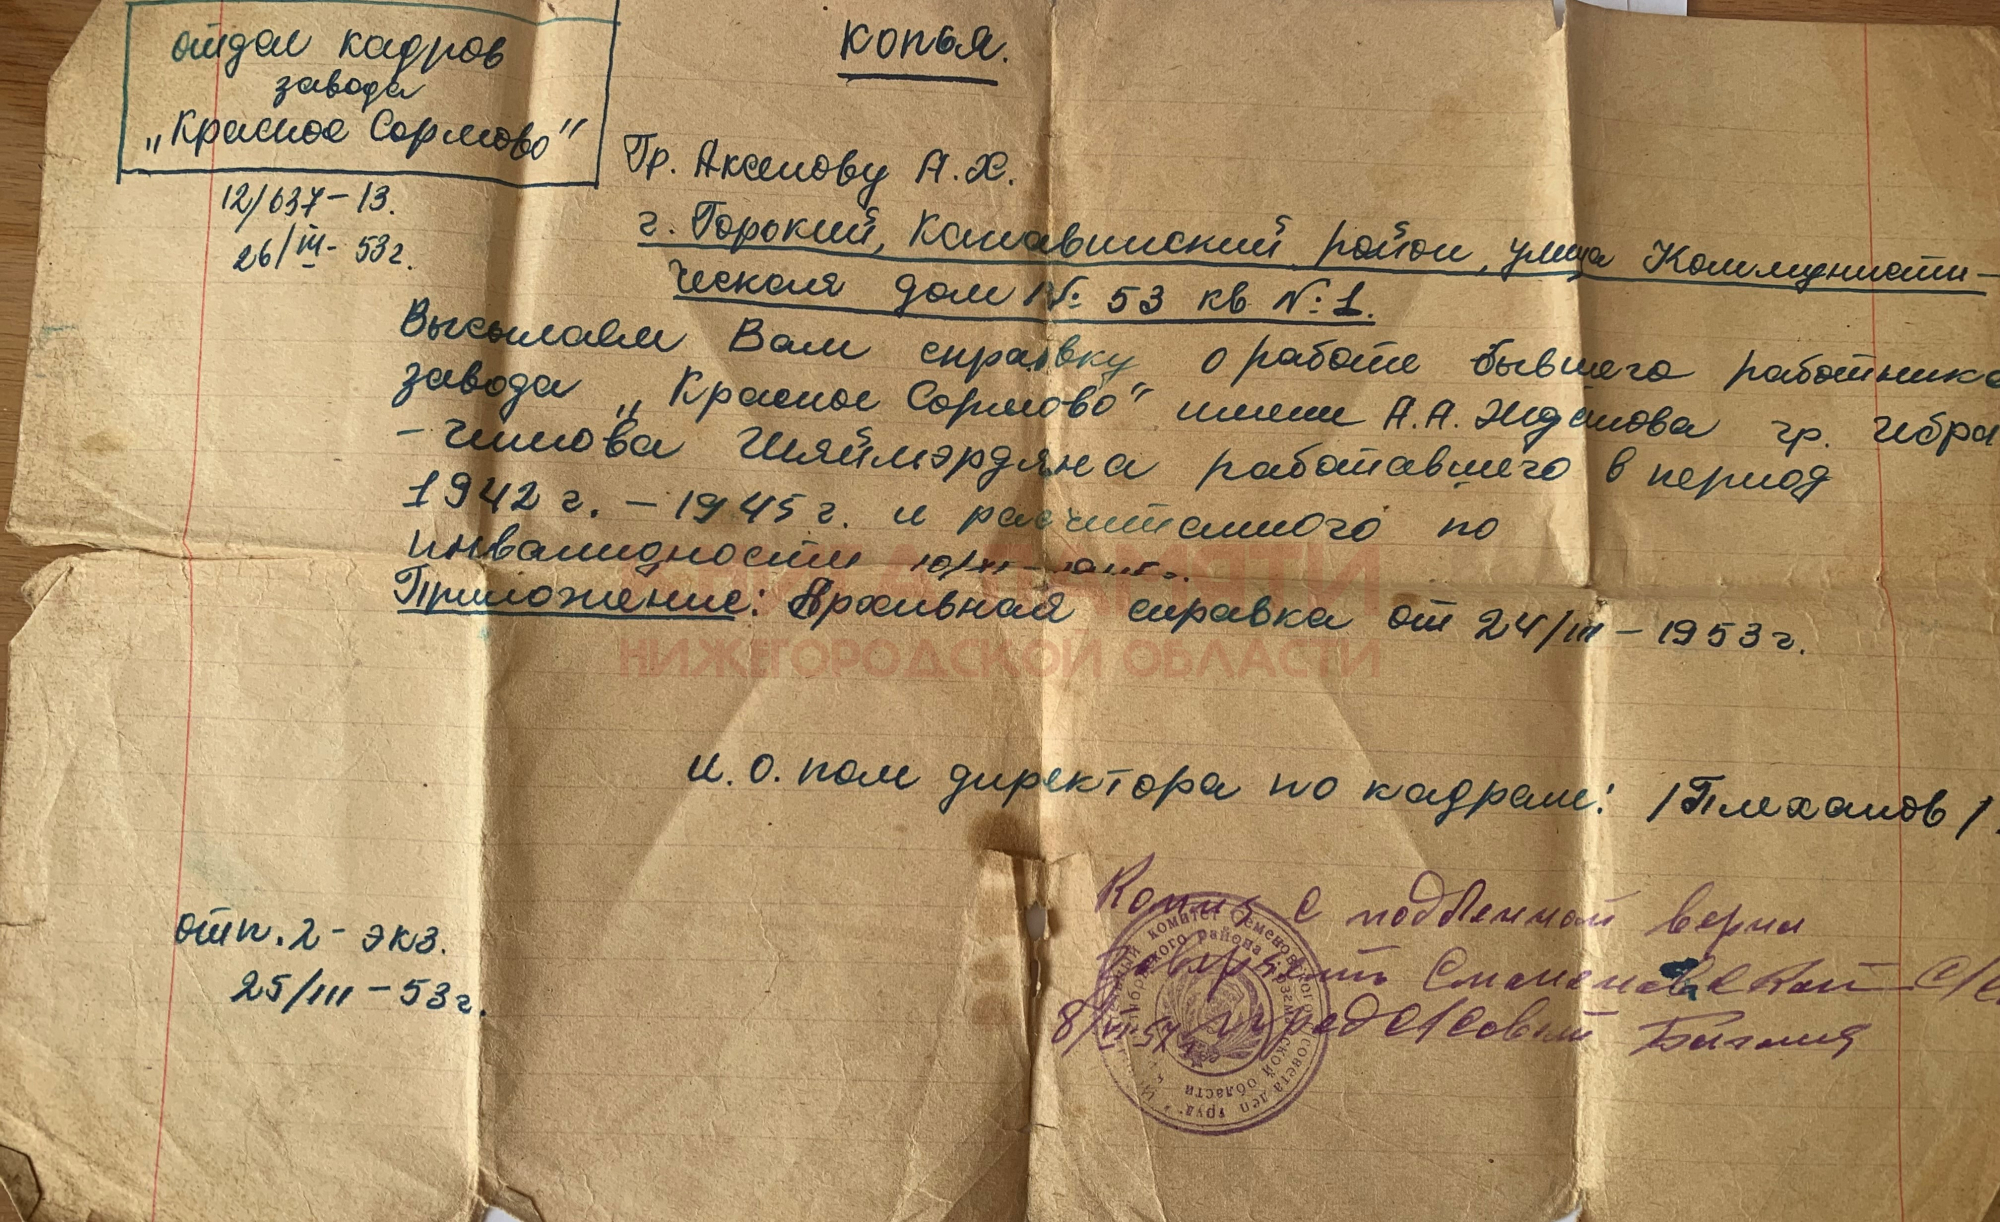 отдел кадров
завода
„Красное Сормово"
12/637-13.
26/III- 53г.
копья.
Гр. Аксенову А.Х.
г. Горький, Канавинский район, улица Коммунисти-
ческая дом №: 53 кв №:1.
Высылаем Вам справку о работе бывшего работника
завода „Красное Сормово" имени А.А. Жданова гр. Ибра
-гимова Шяймэрдяна работавшего в период
1942г. - 1945г. и расчитанного по
инвалидности
Приложение: Архивная справка от 24/III-1953г.
КНИГА ПАМЯТИ
НИЖЕГОРОДСКОЙ ОБЛАСТИ
И.О. пом директора по кадрам: /Плеханов/.
отп. 2- экз.
25/III-53г.
Копия с подленной верна
8/VI-57
комитет Семеновского сельсовета деп. труд.
района Горьковской области